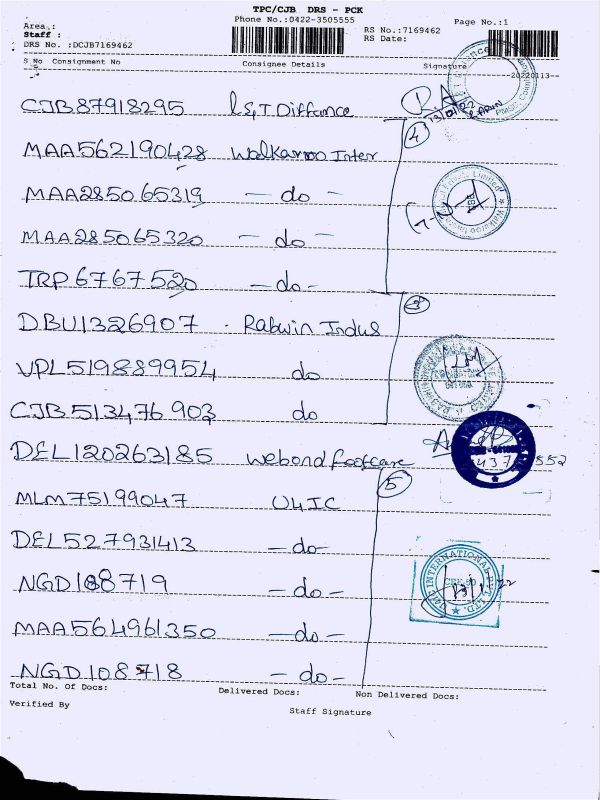 TPC/CJB DRS - PCK
Phone No.:0422-3505555
Page No.:1
Area :
Staff :
DRS No. :DCJB7169462
RS No.:7169462
RS Date:
S No Consignment No Consignee Details Signature
20220113
CJB87918295 L&T Diffance R.A
13/01/22
MAA562190428 Walkaroo Inter 4
MAA285065319 - do -
MAA285065320 - do -
TRP6767520 - do -
DBU1326907 Rabwin Indus 3
VPL519889954 do
CJB513476903 do
DEL120263185 Webond footcare
MLM75199047 U4IC 5
DEL527931413 - do -
NGD188719 - do -
MAA564961350 - do -
NGD108718 - do -
Total No. Of Docs: Delivered Docs: Non Delivered Docs:
Verified By
Staff Signature